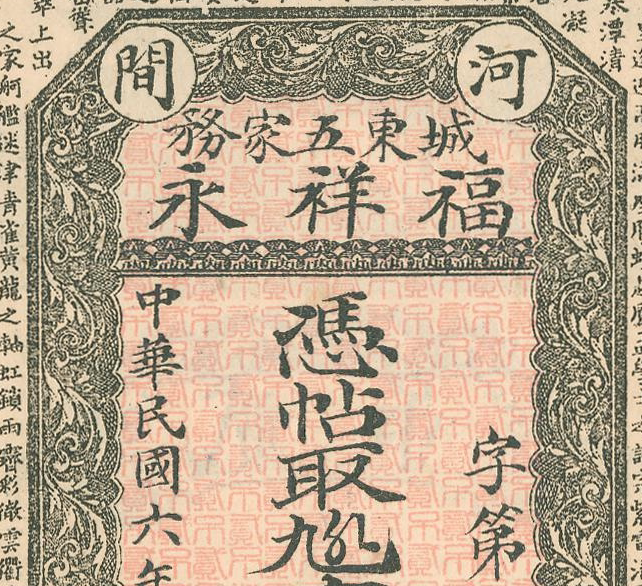 河間
城東五家務
福祥永
字第
憑帖取九八
中華民國六年
寒潭清
凝
翠上出
之家舸艦迷津青雀黃龍之軸虹鎖雨霽彩徹雲衢